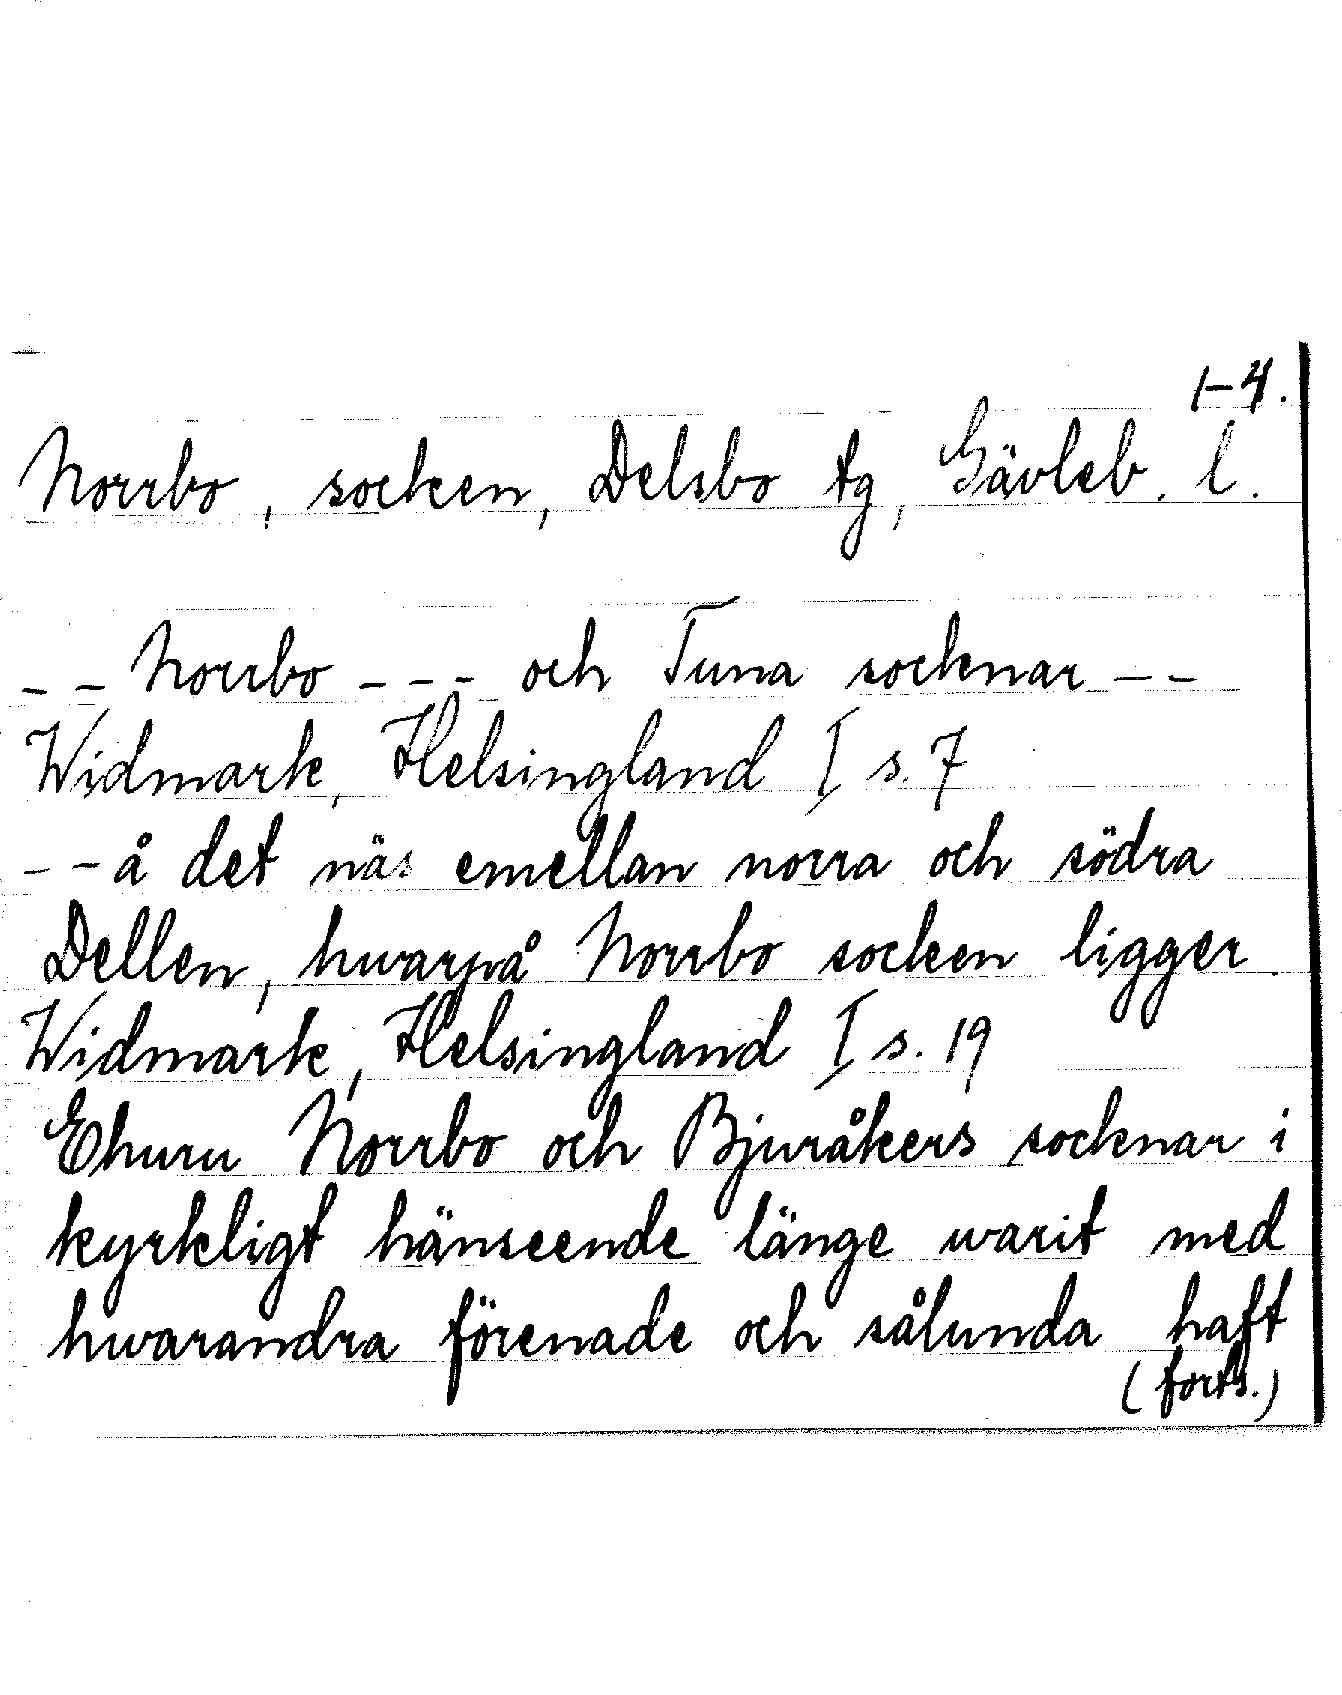 1-4.
Norrbo, socken, Delsbo tg, Gävleb. l.
-- Norrbo --- och Tuna socknar --
Widmark, Helsingland I s. 7
-- å det näs emellan norra och södra
Dellen, hwarpå Norrbo socken ligger
Widmark, Helsingland I s. 19
Ehuru Norrbo och Bjuråkers socknar i
kyrkligt hänseende länge warit med
hwarandra förenade och sålunda haft
(forts.)